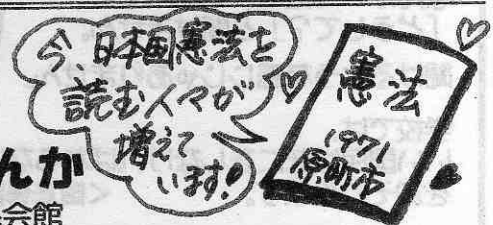 今、日本国憲法を
読む人々が
増えて
います!
憲法
1971
原町市
んか
会館